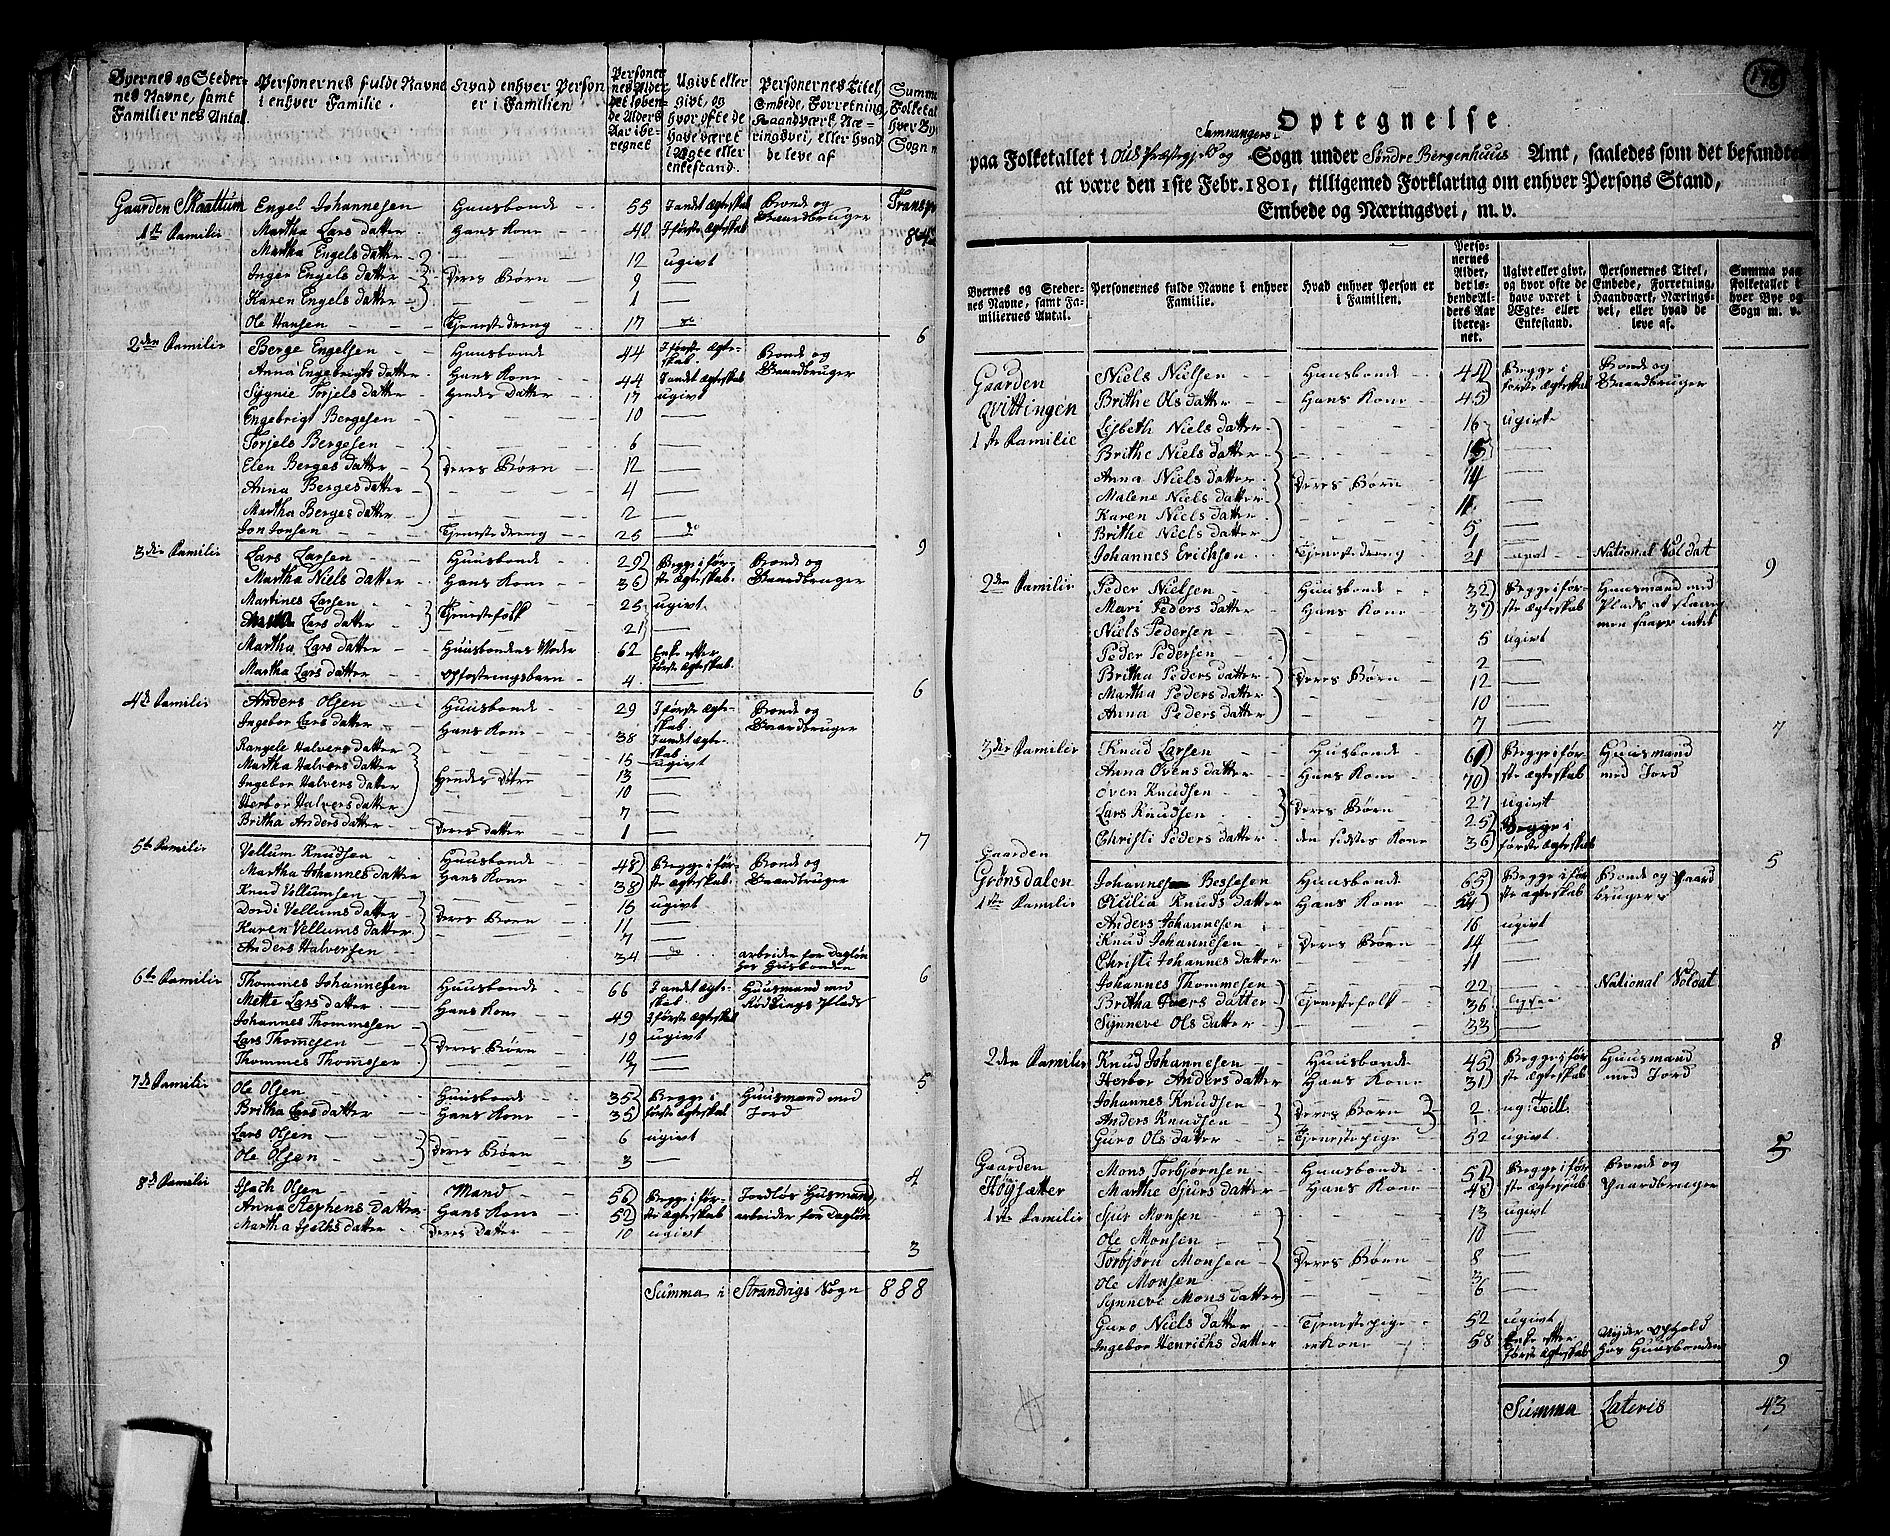 Byernes og Steder-
nes Navne, samt
Familiernes Antal.
Personernes fulde Navne
i enhver Familie.
Hvad enhver Person
er i Familien
Personer
nes Alder
det løben-
de Alders
Aar ibe-
regnet
Ugivt eller
givt, og
hvor ofte de
have været
i Ægte eller
enkestand.
Personernes Titel,
Embede, Forretning
Haandværk, Næ-
ringsvei, eller hvad
de leve af
Gaarden Skaattum Engel Johannesen Huusbonde 55 I andet ægteskab Bonde og
1te Familie Martha Lars datter Hans Kone 40 I første ægteskab Gaardbruger
Martha Engels datter 12 ugivt
Inger Engels datter Deres Børn 9 —
Karen Engels datter 1 —
Ole Hansen Tjenestedreng 17 do
6
2den Familie Berge Engelsen Huusbonde 44 I første ægte-
skab. Bonde og
Anna Engebrigts datter Hans Kone 44 I andet ægteskab Gaardbruger
Sygnie Torjels datter Hendes Datter 17 ugivt
Engebrigt Bergesen 10 —
Torjels Bergesen 6 —
Elen Berges datter Deres Børn 12 —
Anna Berges datter 4 —
Martha Berges datter 2 —
Jon Jonsen Tjenestedreng 25 do
9
3die Familie Lars Larsen Huusbonde 29 Begge i før- Bonde og
Martha Niels datter Hans Kone 36 ste ægteskab. Gaardbruger
Martines Larsen Tjenestefolk 25 ugivt
Lars datter 21 —
Martha Lars datter Huusbondes Moder 62 Enke efter
første ægteskab.
Martha Lars datter opfostringsbarn 4
6
4de Familie Anders Olsen Huusbonde 29 I første ægte-
skab. Bonde og
Ingebor Lars datter Hans Kone 38 I andet ægte-
skab. Gaardbruger
Rangele Halvers datter 15 ugivt
Martha Halvers datter Hendes 13 —
Ingebor Halvers datter 10 —
Herbor Halvers datter 7 —
Britha Anders datter Deres datter 1 —
7
5te Familie Vellum Knudsen Huusbonde 48 Begge i før- Bonde og
Martha Johannes datter Hans Kone 38 ste ægteskab. Gaardbruger
Knud Vellumsen 15 ugivt
Dordi Vellums datter Deres Børn 11 —
Karen Vellums datter 7 —
Anders Halversen 34 do arbeider for Dagløn
hos Husbonden
6
6te Familie Thommes Johannesen Huusbonde 66 I andet ægte-
skab. Huusmand med
Mette Lars datter Hans Kone 49 I første ægteskab Rødnings Plads
Johannes Thommesen 19 ugivt
Lars Thomesen Deres Børn 12 —
Thommes Thommesen 7
5
7de Familie Ole Olsen Huusbonde 35 Begge i Huusmand med
Britha Lars datter Hans Kone 35 første ægteskab Jord
Lars Olsen Deres Børn 6 ugivt
Ole Olsen 3 —
4
8de Familie Isach Olsen Mand 56 Begge i før- Jordløs Husmand
Anna Stephens datter Hans Kone 52 ste ægteskab arbeider for Dagløn
Martha Isachs datter Deres Datter 10 ugivt
3
Summa i Strandvigs Sogn 888
Optegnelse
Samnangers
paa Folketallet i Ous Præstegjeld og Sogn under Søndre Bergenhuus Amt, saaledes som det befandtes
at være den 1ste Febr. 1801, tilligemed Forklaring om enhver Persons Stand,
Embede og Næringsvei, m. v.
Byernes og Steder-
nes Navne, samt Fa-
miliernes Antal.
Personernes fulde Navne i enhver
Familie.
Hvad enhver Person er
i Familien.
Perso-
nernes
Alder,
det lø-
bende Al-
ders Aar
ibereg-
net.
Ugivt eller givt,
og hvor ofte de
have været i
Ægte- eller
Enkestand.
Personernes Titel,
Embede, Forretning,
Haandværk, Nærings-
vei, eller hvad de
leve af.
Summa paa
Folketallet i
hver Bye og
Sogn m. v.
Gaarden Niels Nielsen Huusbonde 44 Begge i Bonde og
Qvittingen Brithe Ols datter Hans Kone 45 første ægteskab Gaardbruger
1ste Familie Lisbeth Niels datter 16 ugivte
Brithe Niels datter 15 —
Anna Niels datter Deres Børn 14 —
Malene Niels datter 11 —
Karen Niels datter 5 —
Brithe Niels datter 1
Johannes Erichsen Tjenestedreng 21 ugivt National Soldat
9
2den Familie Peder Nielsen Huusbonde 32 Begge i før- Huusmand med
Mari Peders datter Hans Kone 37 ste ægteskab Plads
Niels Pedersen 5 ugivt
Peder Pedersen 2 —
Britha Peders datter Deres Børn 12 —
Martha Peders datter 10 —
Anna Peders datter 7 —
7
3die Familie Knud Larsen Husbonde 61 Begge i før- Huusmand
Anna Ovens datter Hans Kone 70 ste ægteskab med Jord
Oven Knudsen Deres Børn 27 ugivt
Lars Knudsen 25 Begge i
Christi Peders datter den sidstes Kone 36 første ægteskab
5
Gaarden
Grønsdalen Johannes Bessesen Huusbonde 65 Begge i før- Bonde og Gaard
1ste Familie Cicilia Knuds datter Hans Kone 54 ste ægteskab bruger
Anders Johannesen 16 ugivt
Knud Johannesen Deres Børn 14 —
Christi Johannes datter 11 —
Johannes Thommesen 22 — National Soldat
Britha datter Tjenestefolk 36
Synneve Ols datter 33 —
8
2den Familie Knud Johannesen Huusbonde 45 Begge i før- Huusmand
Herbor Anders datter Hans Kone 31 ste ægteskab med Jord
Johannes Knudsen Deres Børn 2 ug: Tvill:
Anders Knudsen
Guro Ols datter Tjenestepige 52 ugivt
5
Gaarden Mons Torbjørnsen Huusbonde 51 Begge i før- Bonde og
Høysætter Marthe Sjurs datter Hans Kone 48 ste ægteskab Gaardbruger
1ste Familie Sjur Monsen 13 ugivt
Ole Monsen 10 —
Torbjørn Monsen Deres Børn 8 —
Ole Monsen 3 —
Synneve Mons datter 6
Guro Niels datter Tjenestepige 52 ugivt
Ingebor Henrichs datter 58 Enke efter Nyder Ophold
første ægteskab hos Huusbonden
9
Summa Lateris 43